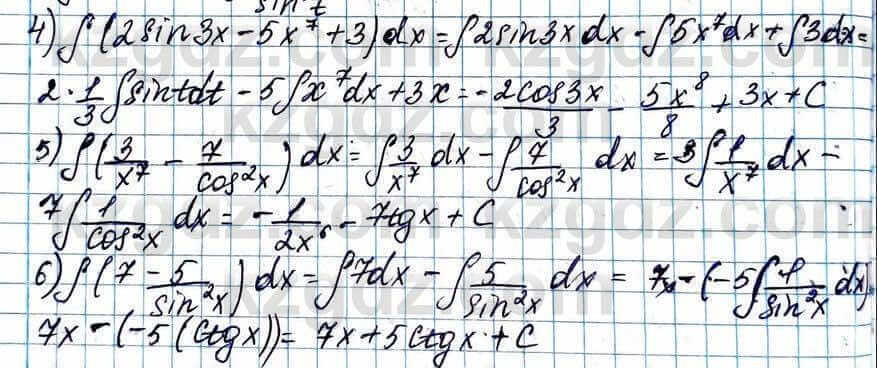 sin t
4) ∫(2sin3x - 5x⁷ + 3)dx = ∫2sin3x dx - ∫5x⁷dx + ∫3dx =
2·1/3∫sintdt - 5∫x⁷dx + 3x = -2cos3x/3 - 5x⁸/8 + 3x + C
5) ∫(3/x⁷ - 7/cos²x) dx = ∫3/x⁷ dx - ∫7/cos²x dx = 3∫1/x⁷ dx -
7∫1/cos²x dx = -1/2x⁶ - 7tgx + C
6) ∫(7 - 5/sin²x) dx = ∫7dx - ∫5/sin²x dx = 7x - (-5∫1/sin²x dx)
7x - (-5(ctgx)) = 7x + 5ctgx + C